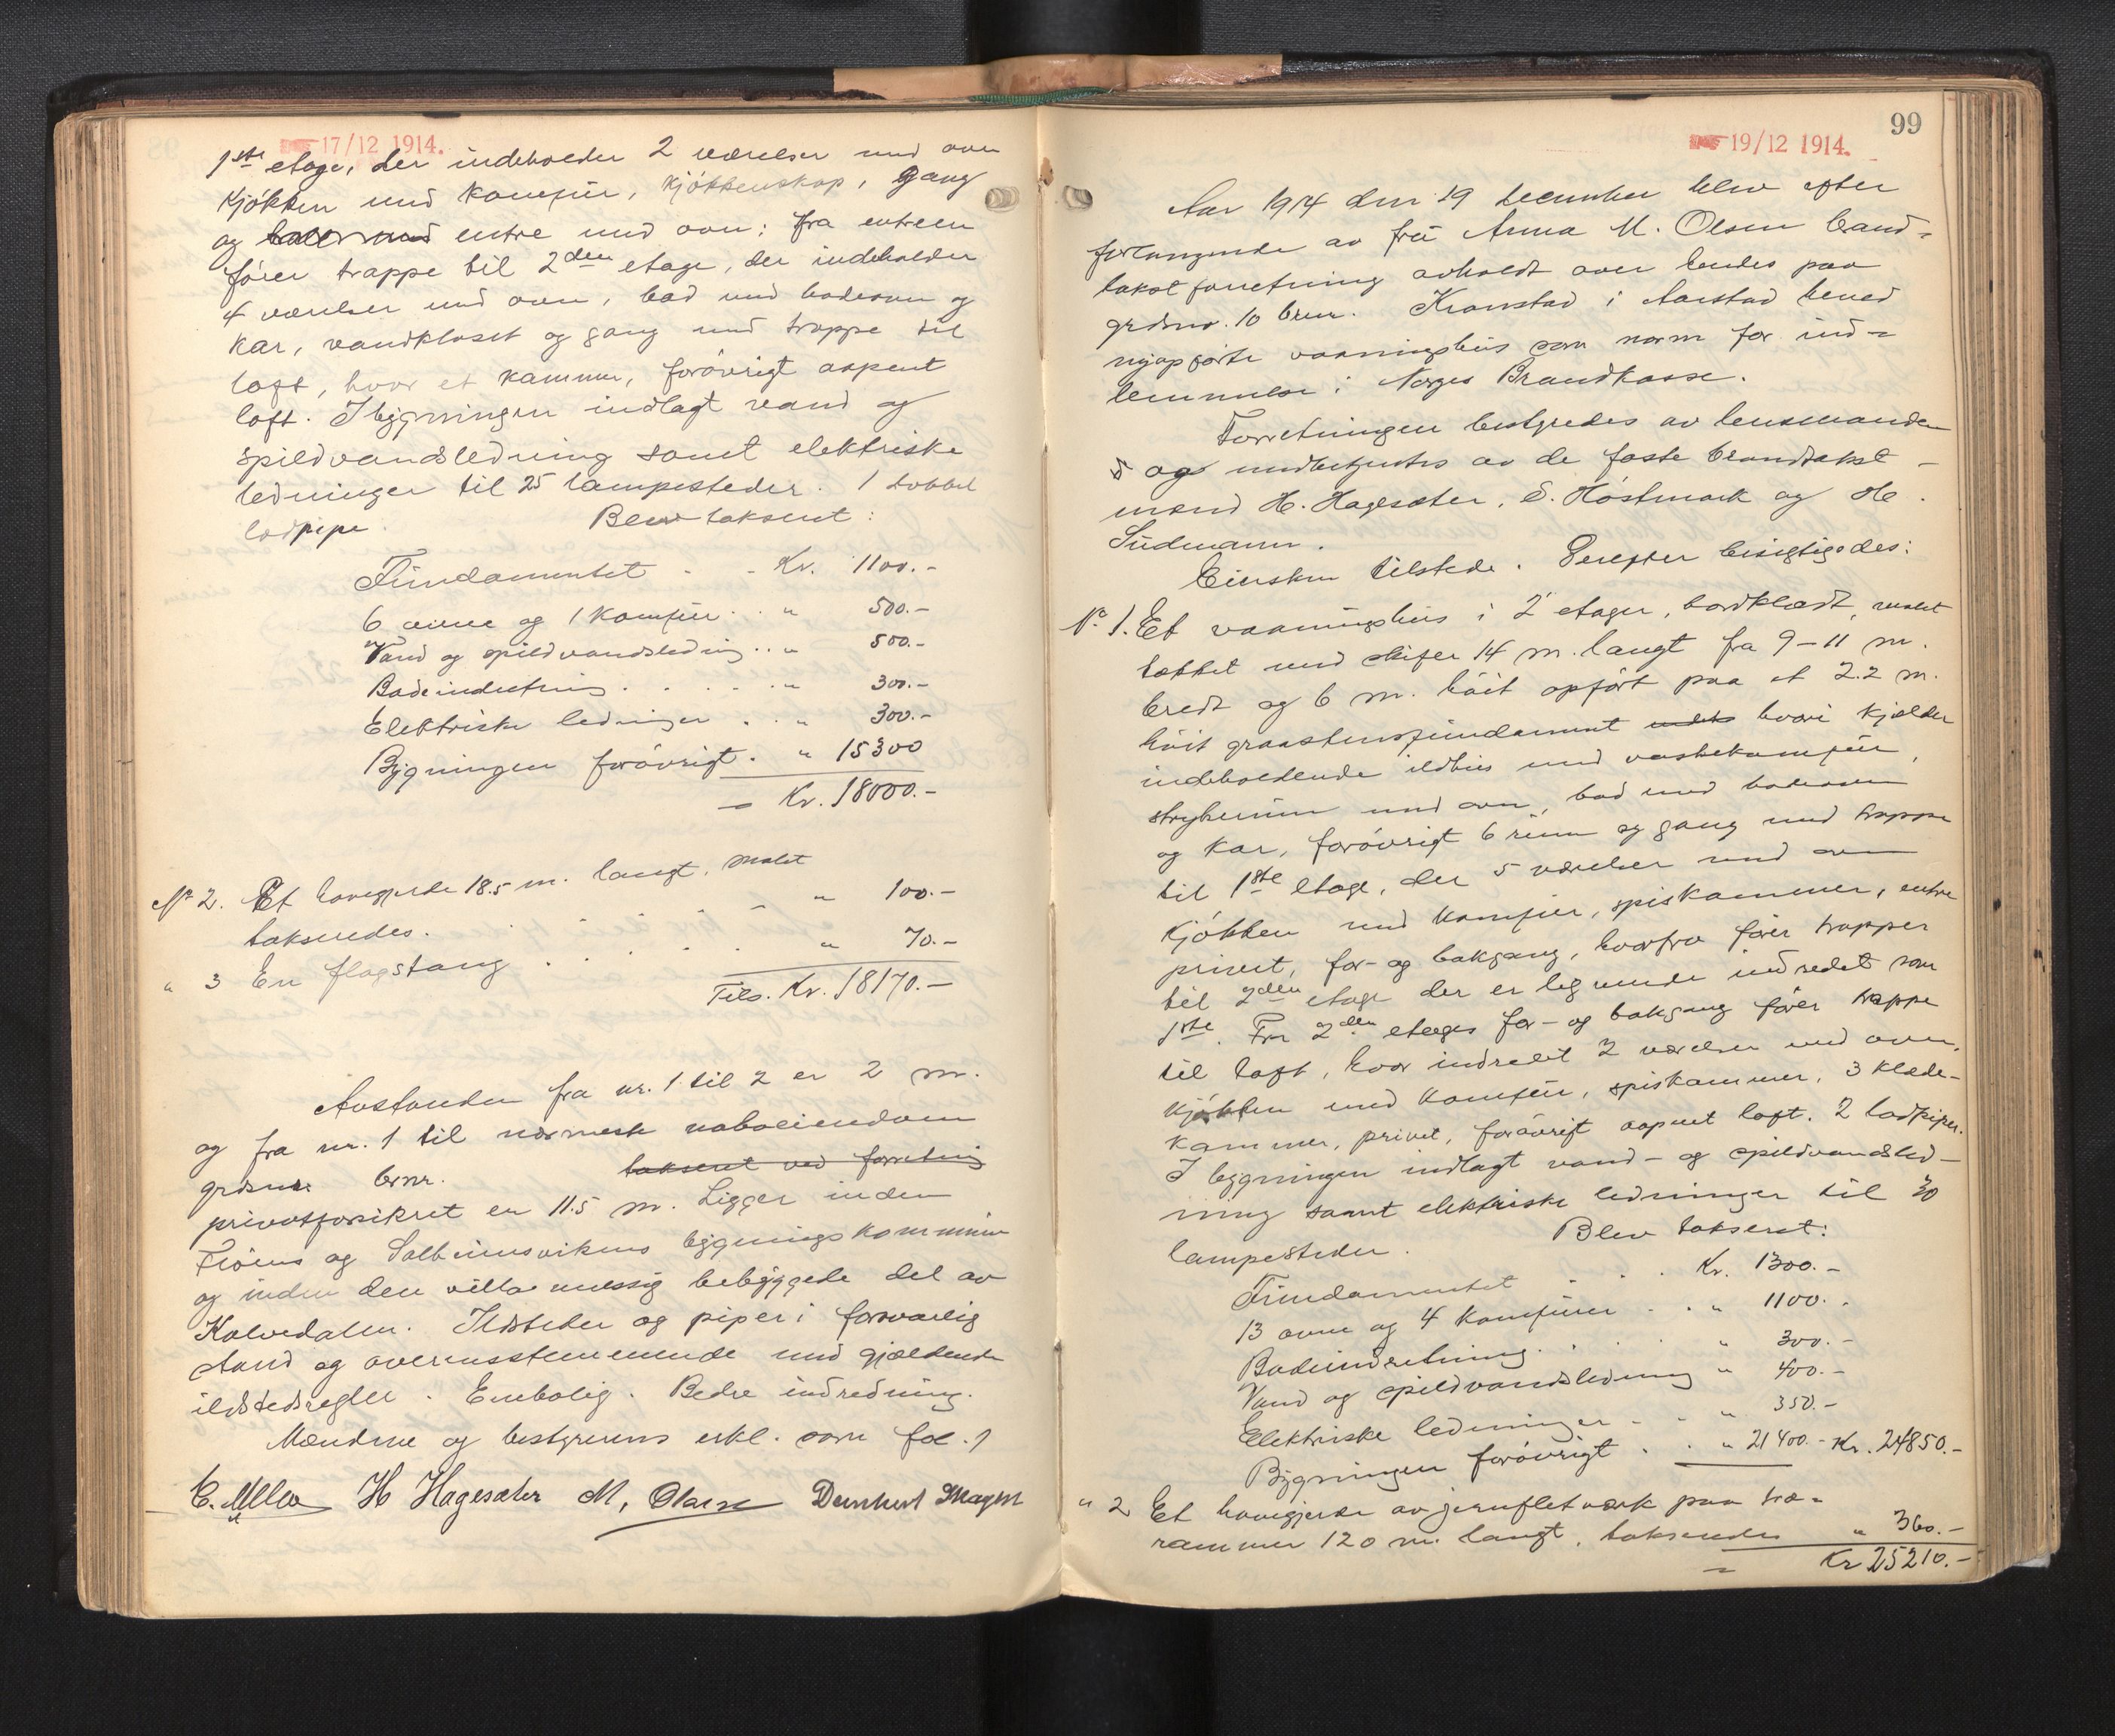 17/12 1914.
1ste etage, der indeholder 2 værelser med ovn
kjøkken med komfur, kjøkkenskap, gang
og entre med ovn; fra entreen
fører trappe til 2den etage, der indeholder
4 værelser med ovn, bad med badeovn og
kar, vandkloset og gang med trappe til
loft, hvor et kammer, forøvrigt aapent
loft. I bygningen indlagt vand og
spildvandsledning samt elektriske
ledninger til 25 lampesteder. 1 dobbel
lodpipe. Blev taksert:
Fundamentet - - Kr. 1100.-
6 ovne og 1 komfur . . " 500.-
Vand og spildvandsledning . . " 500.-
Badeindretning . . . . . " 300.-
Elektriske ledninger . . " 300.-
Bygningen forøvrigt . " 15300
= Kr. 18000.-
No 2. Et havegjerde 18.5 m. langt, malet
takseredes. . . . . - " 100.-
" 3 En flagstang . . . . . " 70.-
Tils. Kr. 18170.-
Avstanden fra nr. 1 til 2 er 2 m.
og fra nr. 1 til nærmeste naboeiendom
grdsnr. brnr. taksert ved forretning
privatforsikret er 11.5 m. Ligger inden
Fløens og Solheimsvikens bygningskommune
og inden den villamæssig bebyggede del av
Kalvedalen. Ildsteder og piper i forsvarlig
stand og overensstemmende med gjældende
ildstedsregler. Enebolig. Bedre indredning.
Mændene og bestyrerens erkl. som fol. 1
H Hagesæter M. Olsen
99
19/12 1914.
Aar 1914 den 19 december blev efter
forlangende av frü Anna M. Olsen brand-
takstforretning avholdt over hendes paa
grdsno. 10 brnr. Kronstad i Aarstad herred
nyopførte vaaningshus som norm for ind-
lemmelse i Norges Brandkasse.
Forretningen bestyredes av lensmanden
og medbetjentes av de faste brandtakst-
mænd H. Hagesæter, S. Høstmark og H.
Sudmann.
Eiersken tilstede. Derefter besigtigedes:
No 1. Et vaaningshus i 2 etager, bordklædt, malet
tækket med skifer 14 m. langt fra 9-11 m.
bredt og 6 m. høit opført paa et 2.2 m.
høit graastensfundament hvori kjælder
indeholdende ildhus med vaskekomfur,
strykerum med ovn, bad med badeovn
og kar, forøvrigt 6 rum og gang med trappe
til 1ste etage, der 5 værelser med ovn
kjøkken med komfur, spiskammer, entre
privet, for- og bakgang, hvorfra fører trapper
til 2den etage der er lignende indredet som
1ste. Fra 2den etages for- og bakgang fører trappe
til loft, hvor indredet 2 værelser med ovn,
kjøkken med komfur, spiskammer, 3 klæde-
kammer, privet, forøvrigt aapent loft. 2 lodpiper.
I bygningen indlagt vand- og spildvandsled-
ning samt elektriske ledninger til 30
lampesteder. Blev taksert:
Fundamentet . . . Kr. 1300.-
13 ovne og 4 komfurer . . " 1100.-
Badeindretning. . . . " 300.-
Vand og spildvandsledning " 400.-
Elektriske ledninger - - " 350.-
Bygningen forøvrigt . . " 21400.- Kr. 24850.-
" 2 Et havegjerde av jernfletverk paa træ-
rammer 120 m. langt, takseredes " 360.-
= Kr 25210.-